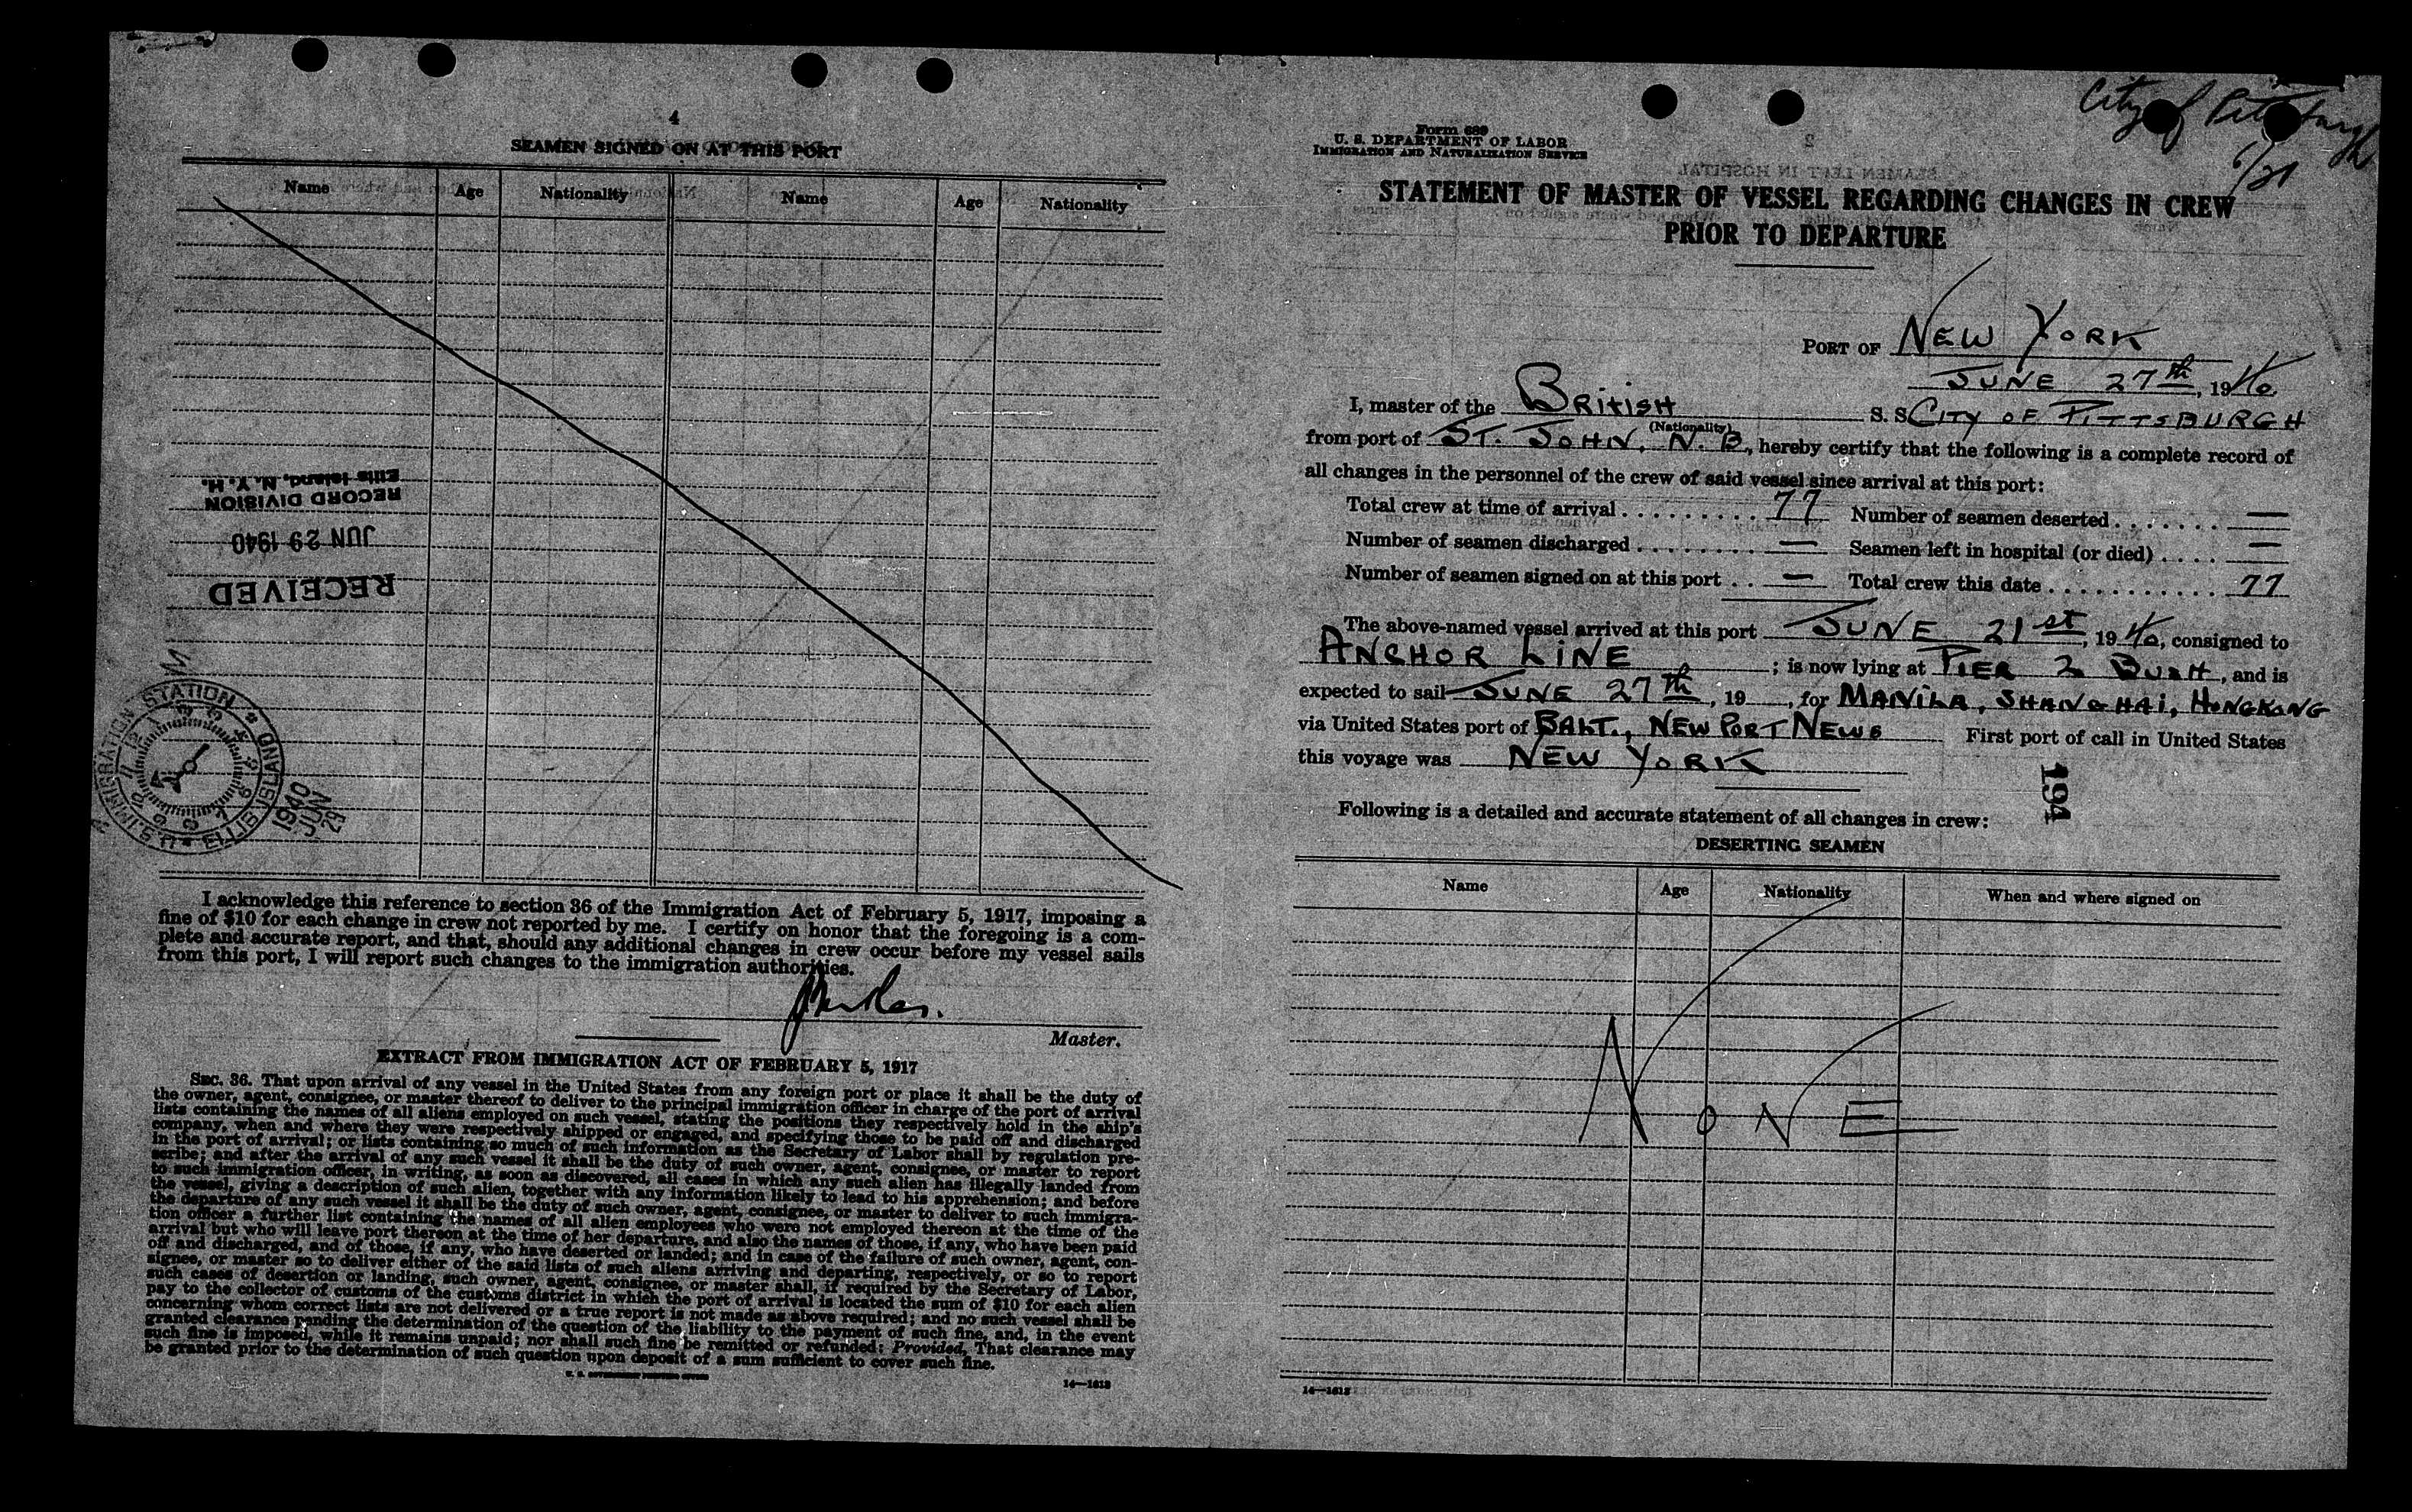 4
SEAMEN SIGNED ON AT THIS PORT
Name Age Nationality Name Age Nationality
RECEIVED
JUN 29 1940
RECORD DIVISION
Ellis Island, N. Y. H.
U.S. IMMIGRATION STATION ELLIS ISLAND
1940
JUN
29
I acknowledge this reference to section 36 of the Immigration Act of February 5, 1917, imposing a
fine of $10 for each change in crew not reported by me. I certify on honor that the foregoing is a com-
plete and accurate report, and that, should any additional changes in crew occur before my vessel sails
from this port, I will report such changes to the immigration authorities.
Master.
EXTRACT FROM IMMIGRATION ACT OF FEBRUARY 5, 1917
SEC. 36. That upon arrival of any vessel in the United States from any foreign port or place it shall be the duty of
the owner, agent, consignee, or master thereof to deliver to the principal immigration officer in charge of the port of arrival
lists containing the names of all aliens employed on such vessel, stating the positions they respectively hold in the ship's
company, when and where they were respectively shipped or engaged, and specifying those to be paid off and discharged
in the port of arrival; or lists containing so much of such information as the Secretary of Labor shall by regulation pre-
scribe; and after the arrival of any such vessel it shall be the duty of such owner, agent, consignee, or master to report
to such immigration officer, in writing, as soon as discovered, all cases in which any such alien has illegally landed from
the vessel, giving a description of such alien, together with any information likely to lead to his apprehension; and before
the departure of any such vessel it shall be the duty of such owner, agent, consignee, or master to deliver to such immigra-
tion officer a further list containing the names of all alien employees who were not employed thereon at the time of the
arrival but who will leave port thereon at the time of her departure, and also the names of those, if any, who have been paid
off and discharged, and of those, if any, who have deserted or landed; and in case of the failure of such owner, agent, con-
signee, or master so to deliver either of the said lists of such aliens arriving and departing, respectively, or so to report
such cases of desertion or landing, such owner, agent, consignee, or master shall, if required by the Secretary of Labor,
pay to the collector of customs of the customs district in which the port of arrival is located the sum of $10 for each alien
concerning whom correct lists are not delivered or a true report is not made as above required; and no such vessel shall be
granted clearance pending the determination of the question of the liability to the payment of such fine, and, in the event
such fine is imposed, while it remains unpaid; nor shall such fine be remitted or refunded: Provided, That clearance may
be granted prior to the determination of such question upon deposit of a sum sufficient to cover such fine.
U. S. GOVERNMENT PRINTING OFFICE
14—1613
City of Pittsburgh
6/21
Form 689
U. S. DEPARTMENT OF LABOR
IMMIGRATION AND NATURALIZATION SERVICE
STATEMENT OF MASTER OF VESSEL REGARDING CHANGES IN CREW
PRIOR TO DEPARTURE
PORT OF NEW YORK
JUNE 27th, 1940
I, master of the BRITISH S. S. CITY OF PITTSBURGH
(Nationality)
from port of ST. JOHN, N. B., hereby certify that the following is a complete record of
all changes in the personnel of the crew of said vessel since arrival at this port:
Total crew at time of arrival . . . . . . . . . 77 Number of seamen deserted . . . . . . . —
Number of seamen discharged . . . . . . . . — Seamen left in hospital (or died) . . . . —
Number of seamen signed on at this port . . — Total crew this date . . . . . . . . . . . 77
The above-named vessel arrived at this port JUNE 21st, 1940, consigned to
ANCHOR LINE ; is now lying at PIER 2 BUSH, and is
expected to sail JUNE 27th, 19 , for MANILA, SHANGHAI, HONGKONG
via United States port of BALT., NEWPORT NEWS First port of call in United States
this voyage was NEW YORK
194
Following is a detailed and accurate statement of all changes in crew:
DESERTING SEAMEN
Name Age Nationality When and where signed on
NONE
14—1613